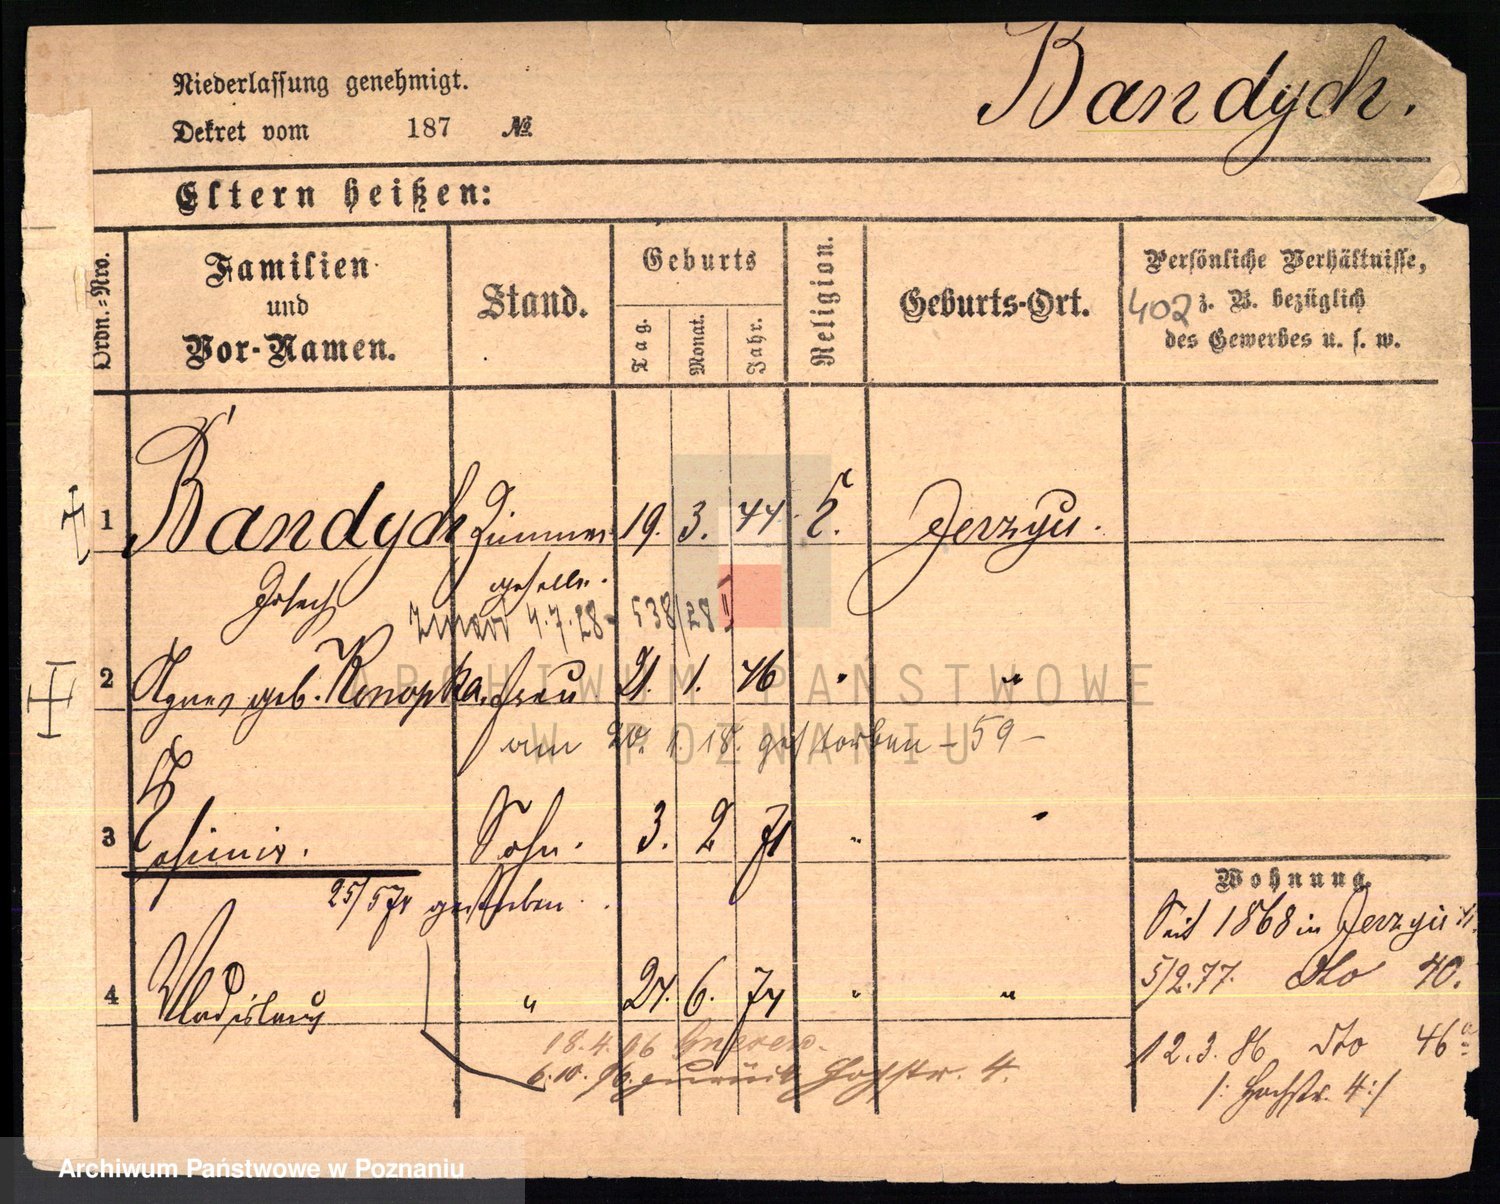 Niederlassung genehmigt.
Dekret vom 187 №
Bandych.
Eltern heißen:
Ordn.-Nro.
Familien und Vor-Namen.
Stand.
Geburts
Tag. Monat. Jahr.
Religion.
Geburts-Ort.
Persönliche Verhältnisse,
402 z. B. bezüglich
des Gewerbes u. s. w.
1 Bandych Zimmer- 19. 3. 44. Jerzyce.
Josef geselle.
Zmarł 4.7.28 - 538/28 II
2 Agnes geb. Konopka. Frau 21. 1. 46 " "
am 20. 1. 18. gestorben - 59 -
3 Casimir. Sohn. 3. 2 71 " "
25/5 71 gestorben.
Wohnung.
Seit 1868 in Jerzyce
5/2.77. dto 40.
4 Vladislaus " 27. 6. 74 " "
18.4.96 Gnesen.
6.10.96. zurück Hochstr. 4.
12.3.86 dto 46a
/: Hochstr. 4 :/
ARCHIWUM PAŃSTWOWE
W POZNANIU
Archiwum Państwowe w Poznaniu